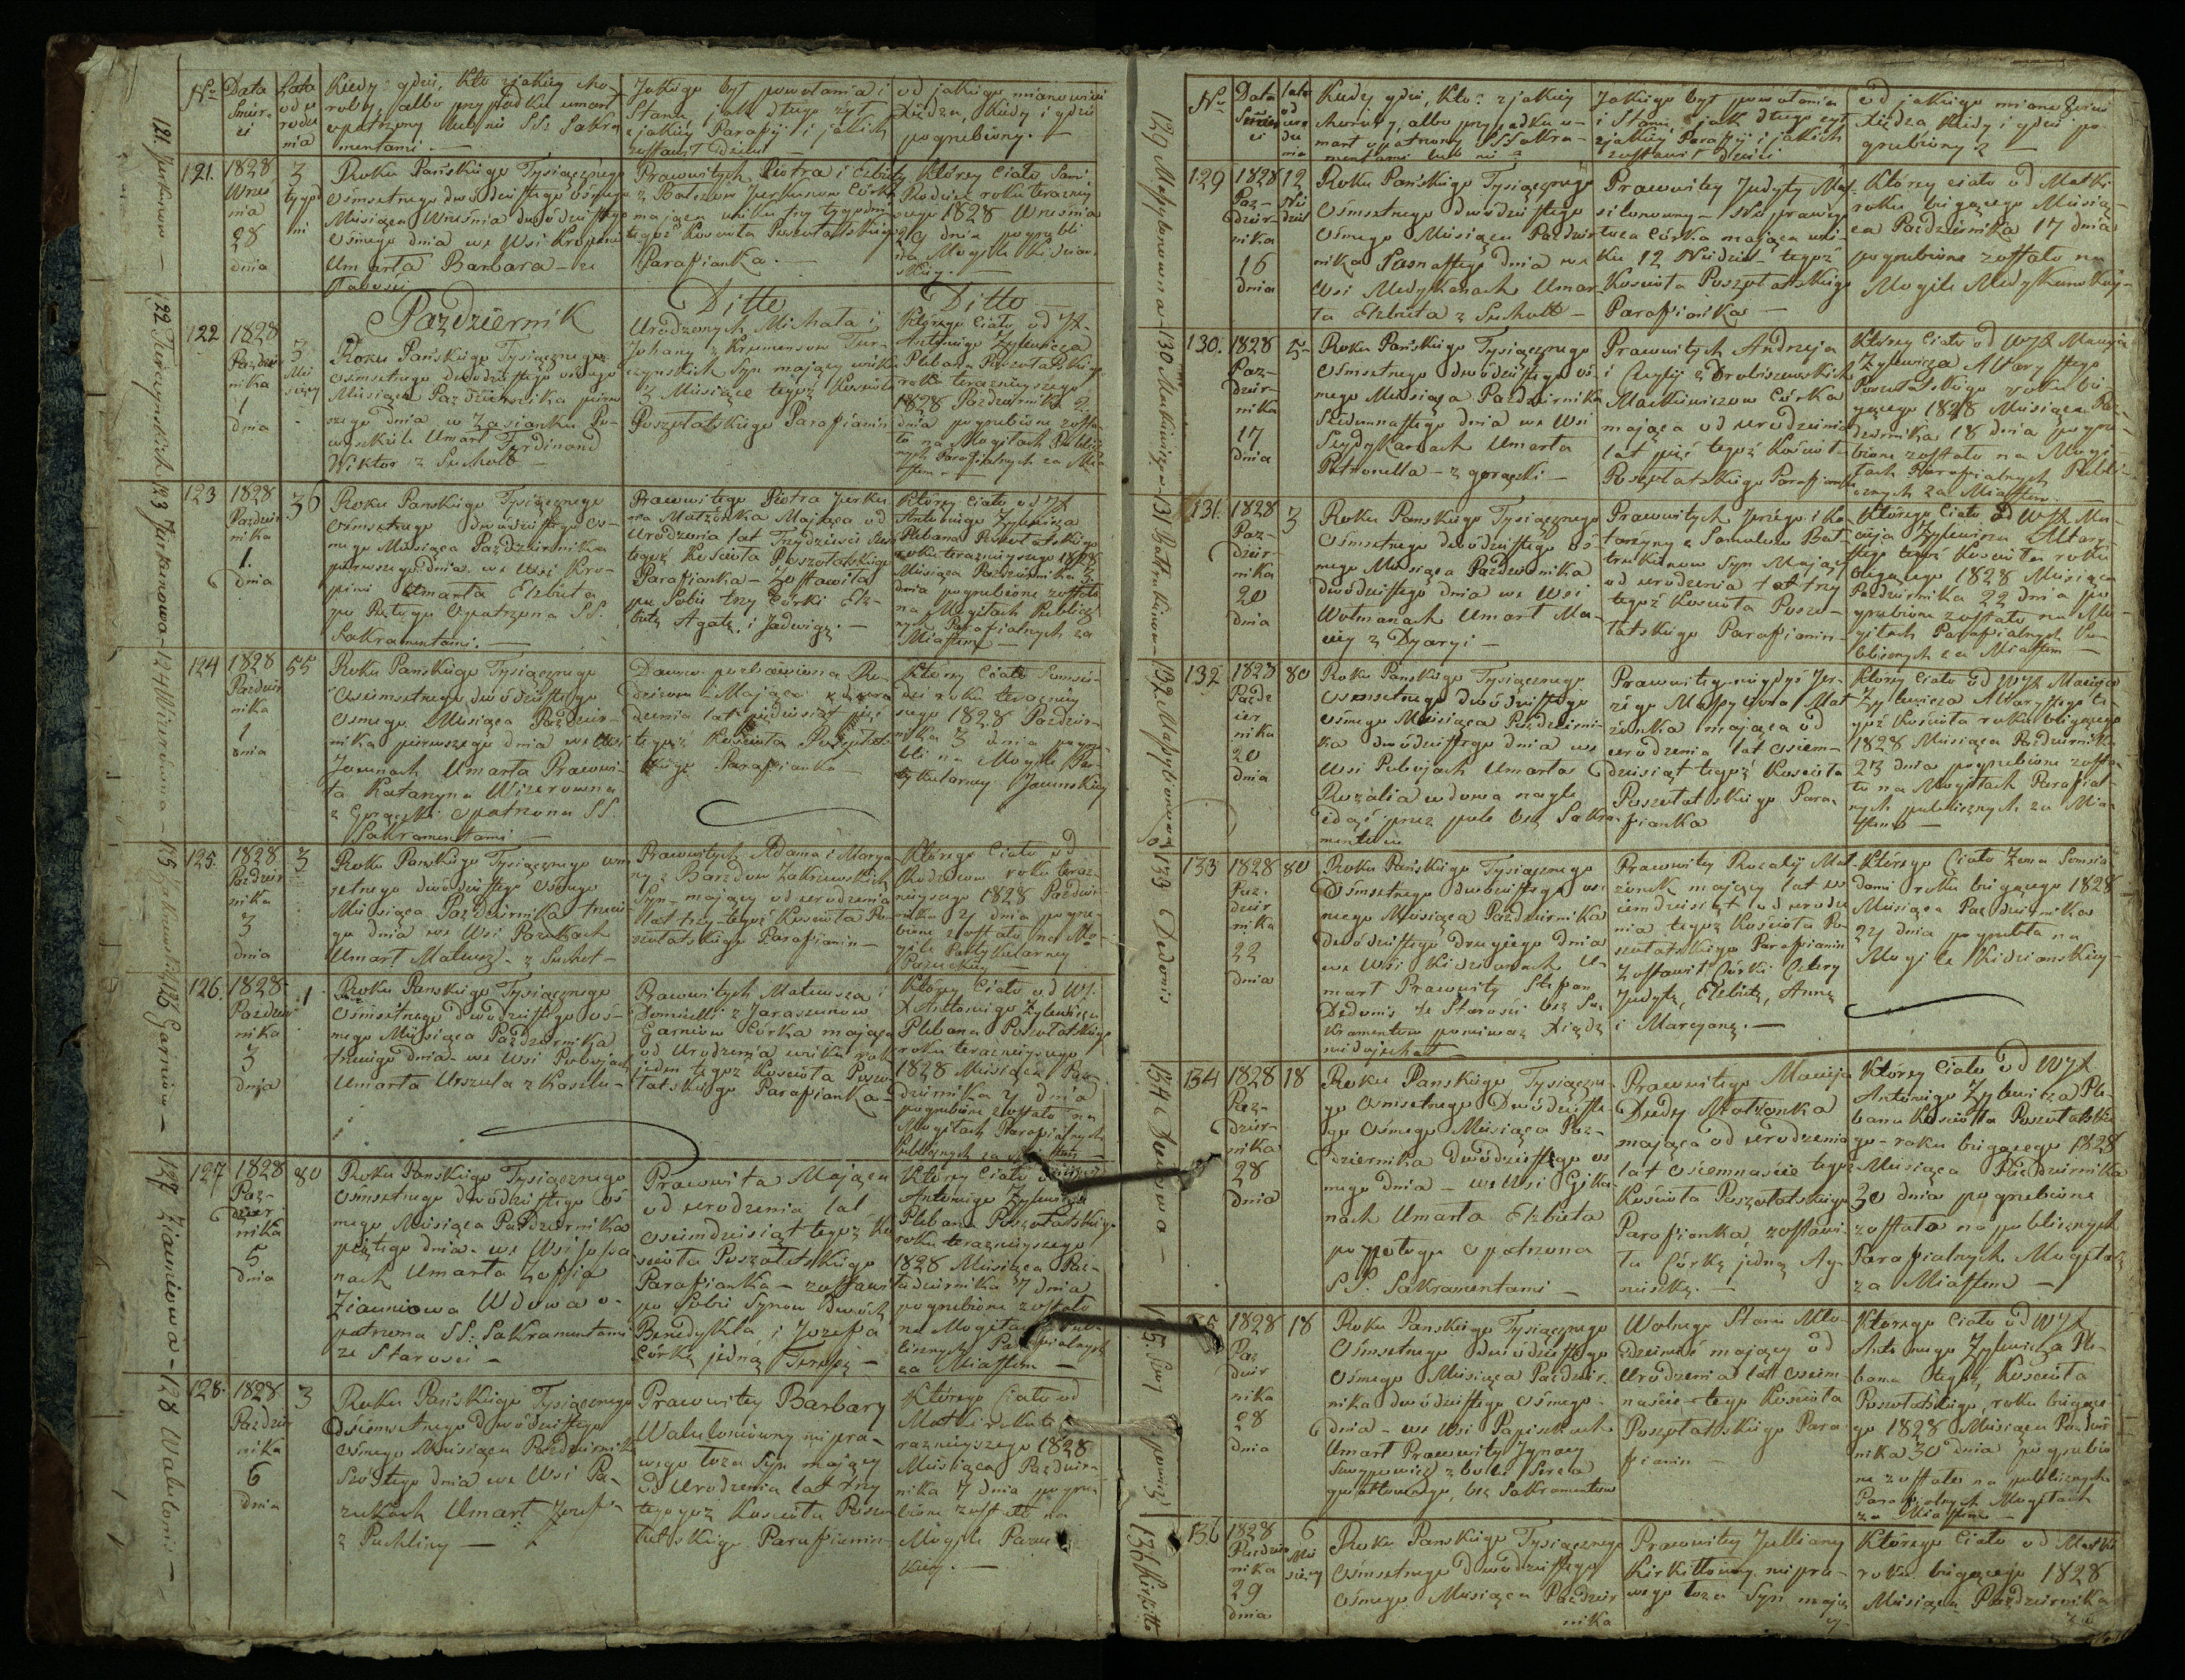 Nro
Data Śmierci
Lata od urodzenia
Kiedy gdzie, Kto z jakiey choroby, albo przypadku umarł opatrzony lub nie SS. Sakramentami. —
Jakiego był powołania i Stanu, jak długo żył z jakiey Parafii i jakich zostawił dzieci —
od jakiego mianowicie Xiędza, Kiedy i gdzie pogrzebiony. —
121.
1828
Września
28
dnia
3
tygodni
Roku Pańskiego Tysiącznego
Ośmsetnego dwódziestego ósmego
Miesiąca Września dwódziestego
Ósmego dnia we Wsi Kropini
Umarła Barbara — ze
Słabości
Prawowitych Piotra i Elżbiety
Jurkunow Córka
mająca wieku trzy tygodni
tegoż Kościoła Poszołatskiego
Parafianka. —
Którey Ciało Sami
Rodzice roku teraźniey
szego 1828 Września
29 dnia pogrzebli
na Mogile
Październik
Ditto
Ditto
122
1828
Października
1
dnia
3
Miesięcy
Roku Pańskiego Tysiącznego
Ośmsetnego dwódziestego ósmego
Miesiąca Października pierw
szego dnia w Zaścianku
Umarł Ferdinand
Wiktor z Suchot —
Urodzonych Michała i
Johany z
Syn mający wieku
3 Miesiące tegoż Kościoła
Poszołatskiego Parafianin
Którego Ciało od JX.
Antoniego Żylewicza
Plebana Poszołatskiego
roku teraźnieyszego
1828 Października 2
dnia pogrzebione zosta
ło na Mogiłach Publicz
nych Parafialnych za Mia
stem —
123
1828
Października
1.
dnia
36
Roku Pańskiego Tysiącznego
Ośmsetnego dwódziestego ós
mego Miesiąca Października
pierwszego dnia we Wsi Kro
pini Umarła Elżbieta
po Połogu Opatrzona SS.
Sakramentami. —
Prawowitego Piotra Jurku
na Małżonka Mająca od
Urodzenia lat Trzydzieści
tegoż Kościoła Poszołatskiego
Parafianka — Zostawiła
po Sobie trzy Córki Elż-
bietę Agatę, i Jadwigę. —
Którey Ciało od JX
Antoniego Żylewicza
Plebana Poszołatskiego
roku teraźnieyszego 1828
Miesiąca Października 3
dnia pogrzebione zostało
na Mogiłach Publicz
nych Parafialnych za
Miastem —
124
1828
Października
1
dnia
55
Roku Pańskiego Tysiącznego
Ośmsetnego dwódziestego
Ósmego Miesiąca Paździer-
nika pierwszego dnia we Wsi
Jawnach Umarła Prawowi-
ta Katarzyna Wizerowna
z Gorączki Opatrzona SS.
Sakramentami —
Mająca od uro
dzenia lat piędziesiąt pięć
tegoż Kościoła Poszołat
skiego Parafianka —
Którey Ciało
roku teraźniey
szego 1828 Paździer-
nika 3 dnia pogrze
bli na Mogile Par-
tykularney Jawnskiey
125.
1828
Października
3
dnia
3
Roku Pańskiego Tysiącznego
setnego dwódziestego Ósmego
Miesiąca Października trzecie
go dnia we Wsi Pazukach
Umarł Mateusz — z Suchot —
Prawowitych Adama i Marya
ny z Zakrzewskich
Syn — mający od urodzenia
lat trzy tegoż Kościoła Po
szołatskiego Parafianin —
Którego Ciało od
Rodziców roku teraź-
nieyszego 1828 Paździer
nika 4 dnia pogrze-
bione zostało na Mo-
gile Partykularney
Pazuckiey —
126.
1828
Października
3
dnia
1
Roku Pańskiego Tysiącznego
Ośmsetnego dwódziestego ós-
mego Miesiąca Października
trzeciego dnia — we Wsi
Umarła Urszula z Kaszlu —
Prawowitych Mateusza i
Domicelli z Jaraszunow
Garniow Córka mająca
od Urodzenia wieku rok
jeden tegoż Kościoła Poszo
łatskiego Parafianka —
Którey Ciało od WJ.
X Antoniego Żylewicza
Plebana Poszołatskiego
roku teraźnieyszego
1828 Miesiąca Paź-
dziernika 4 dnia
pogrzebione zostało na
Mogiłach Parafialnych
Publicznych za
127
1828
Października
5
dnia
80
Roku Pańskiego Tysiącznego
Ośmsetnego dwódziestego ós-
mego Miesiąca Października
piątego dnia — we Wsi
nach Umarła Zofija
Ziauniowa Wdowa o-
patrzona SS: Sakramentami
ze Starości —
Prawowita Mająca
od urodzenia lat
ośmdziesiąt tegoż Ko
ścioła Poszołatskiego
Parafianka — zostawi
ła po Sobie Synow dwóch
Benedykta, i Jozefa
Córkę jedną Teresę —
Którey Ciało
Antoniego Żylewicza
Plebana Poszołatskiego
roku teraźnieyszego
1828 Miesiąca Paź-
dziernika 7 dnia
pogrzebione zostało
na Mogiłach Pub-
licznych Parafialnych
za Miastem —
128.
1828
Października
6
dnia
3
Roku Pańskiego Tysiącznego
Ośmsetnego dwódziestego
Ósmego Miesiąca Października
Szóstego dnia we Wsi Pa-
zukach Umarł Jozef
z Puchliny —
Prawowitey Barbary
Waluloniowny niepra-
wego łoża Syn mający
od Urodzenia lat trzy
tegoż Kościoła Poszo
łatskiego Parafianin
Którego Ciało od
Matki roku te
raźnieyszego 1828
Miesiąca Paździer-
nika 7 dnia pogrze
bione zostało na
Mogile Pazuc
kiey. —
121. Jurkunow — 122 Turczynskich 123 Jurkunowa — 124 Wizerowna — 125 Zakrzewski 126 Garniow — 127 Ziauniowa — 128 Walulonis —
Nro
Data Śmierci
lata od urodzenia
Kiedy gdzie, Kto? z jakiey choroby, albo przypadku umarł opatrzony SS Sakramentami lub nie?
Jakiego był powołania i Stanu, jak długo żył z jakiey Parafii i jakich zostawił dzieci
od jakiego mianowicie Xiędza Kiedy i gdzie pogrzebiony? —
129
1828
Października
16
dnia
12
Niedziel
Roku Pańskiego Tysiącznego
Ośmsetnego dwódziestego
Ósmego Miesiąca Paździer
nika Szesnastego dnia we
Wsi Medykanach Umar-
ła Elżbieta z Suchot —
Prawowitey Judyty
Nieprawego
łoża Córka mająca wie-
ku 12 Niedziel tegoż
Kościoła Poszołatskiego
Parafianka —
Którey ciało od Matki
roku bieżącego Miesią-
ca Października 17 dnia
pogrzebione zostało na
Mogile Medykanskiey —
130.
1828
Października
17
dnia
5
Roku Pańskiego Tysiącznego
Ośmsetnego dwódziestego ós-
mego Miesiąca Października
Siedemnastego dnia we Wsi
Umarła
Petronella — z gorączki —
Prawowitych Andrzeja
i
Córka
mająca od urodzenia
lat pięć tegoż Kościoła
Poszołatskiego Parafianka
Którey Ciało od WJX Macieja
Żylewicza Altarystego
Poszołatskiego roku bie
żącego 1828 Miesiąca Paź-
dziernika 18 dnia pogrze-
bione zostało na Mogi-
łach Parafialnych Publi-
cznych za Miastem —
131.
1828
Października
20
dnia
3
Roku Pańskiego Tysiącznego
Ośmsetnego dwódziestego ós-
mego Miesiąca Października
dwódziestego dnia we Wsi
Wołmanach Umarł Ma-
ciey z Dyaryi —
Prawowitych Jerzego i Ka
tarzyny z
Syn Mający
od urodzenia lat trzy
tegoż Kościoła Poszo-
łatskiego Parafianin —
Którego Ciało od WJX Ma-
cieja Żylewicza Altary-
stego tegoż Kościoła roku
bieżącego 1828 Miesiąca
Października 22 dnia po
grzebione zostało na Mo-
giłach Parafialnych Pu-
blicznych za Miastem —
132
1828
Października
20
dnia
80
Roku Pańskiego Tysiącznego
Ośmsetnego dwódziestego
Ósmego Miesiąca Październi-
ka dwódziestego dnia we
Wsi Umarła
Rozalia wdowa nagle
idąc przez pole bez Sakra-
mentow
Prawowitey niegdyś Jer-
zego Małż
żonka mająca od
urodzenia lat ośiem-
dziesiąt tegoż Kościoła
Poszołatskiego Para-
fianka
Którey Ciało od WJX Macieja
Żylewicza Altarystego te-
goż Kościoła roku bieżącego
1828 Miesiąca Października
23 dnia pogrzebione zosta
ło na Mogiłach Parafial-
nych publicznych za Mia-
stem —
133
1828
Października
22
dnia
80
Roku Pańskiego Tysiącznego
Ośmsetnego dwódziestego ós-
mego Miesiąca Października
dwódziestego drugiego dnia
we Wsi Kidzianach U-
marł Prawowity Stefan
Dedonis ze Starości bez Sa-
kramentow ponieważ Xiądz
niedojechał
Prawowitey Rozalij Mał
żonek mający lat oś
iemdziesiąt od urodze
nia tegoż Kościoła Po
szołatskiego Parafianin
Zostawił Córki Cztery
Judytę, Elżbietę, Annę
i Marcyanę. —
Którego Ciało Żona
roku bieżącego 1828
Miesiąca Października
24 dnia pogrzebła na
Mogile Kidzianskiey —
134
1828
Października
28
dnia
18
Roku Pańskiego Tysiączne-
go Ośmsetnego Dwódzieste-
go Ósmego Miesiąca Paź-
dziernika Dwódziestego ós
mego dnia — we Wsi
nach Umarła Elżbieta
po połogu opatrzona
SS. Sakramentami —
Prawowitego Macieja
Dudy Małżonka
mająca od urodzenia
lat ośiemnaście tegoż
Kościoła Poszołatskiego
Parafianka, zostawi-
ła Córkę jedną Ag-
nieszkę. —
Którey Ciało od WJX
Antoniego Żylewicza Ple-
bana Kościoła Poszołatskie
go — roku bieżącego 1828
Miesiąca Października
30 dnia pogrzebione
zostało na publicznych
Parafialnych Mogiłach
za Miastem —
1828
Października
28
dnia
18
Roku Pańskiego Tysiącznego
Ośmsetnego dwódziestego
Ósmego Miesiąca Paździer-
nika dwódziestego Ósmego
dnia — we Wsi Papiszkach
Umarł Prawowity Ignacy
z bolu Serca
gwałtownego, bez Sakramentow
Wolnego Stanu Mło-
dzieniec mający od
Urodzenia lat ośiem-
naście — tego Kościoła
Poszołatskiego Para-
fianin —
Którego Ciało od WJX
Antoniego Żylewicza Ple-
bana tegoż Kościoła
Poszołatskiego, roku bieżące-
go 1828 Miesiąca Paździer-
nika 30 dnia pogrzebio
ne zostało na publicznych
Parafialnych Mogiłach
za Miastem —
136
1828
Października
29
dnia
6
Miesięcy
Roku Pańskiego Tysiącznego
Ośmsetnego dwódziestego
Ósmego Miesiąca Paździer
nika
Prawowitey Julianny
Kirkiłłowny niepra-
wego łoża Syn mają
cy
Którego Ciało od Matki
roku bieżącego 1828
Miesiąca Października